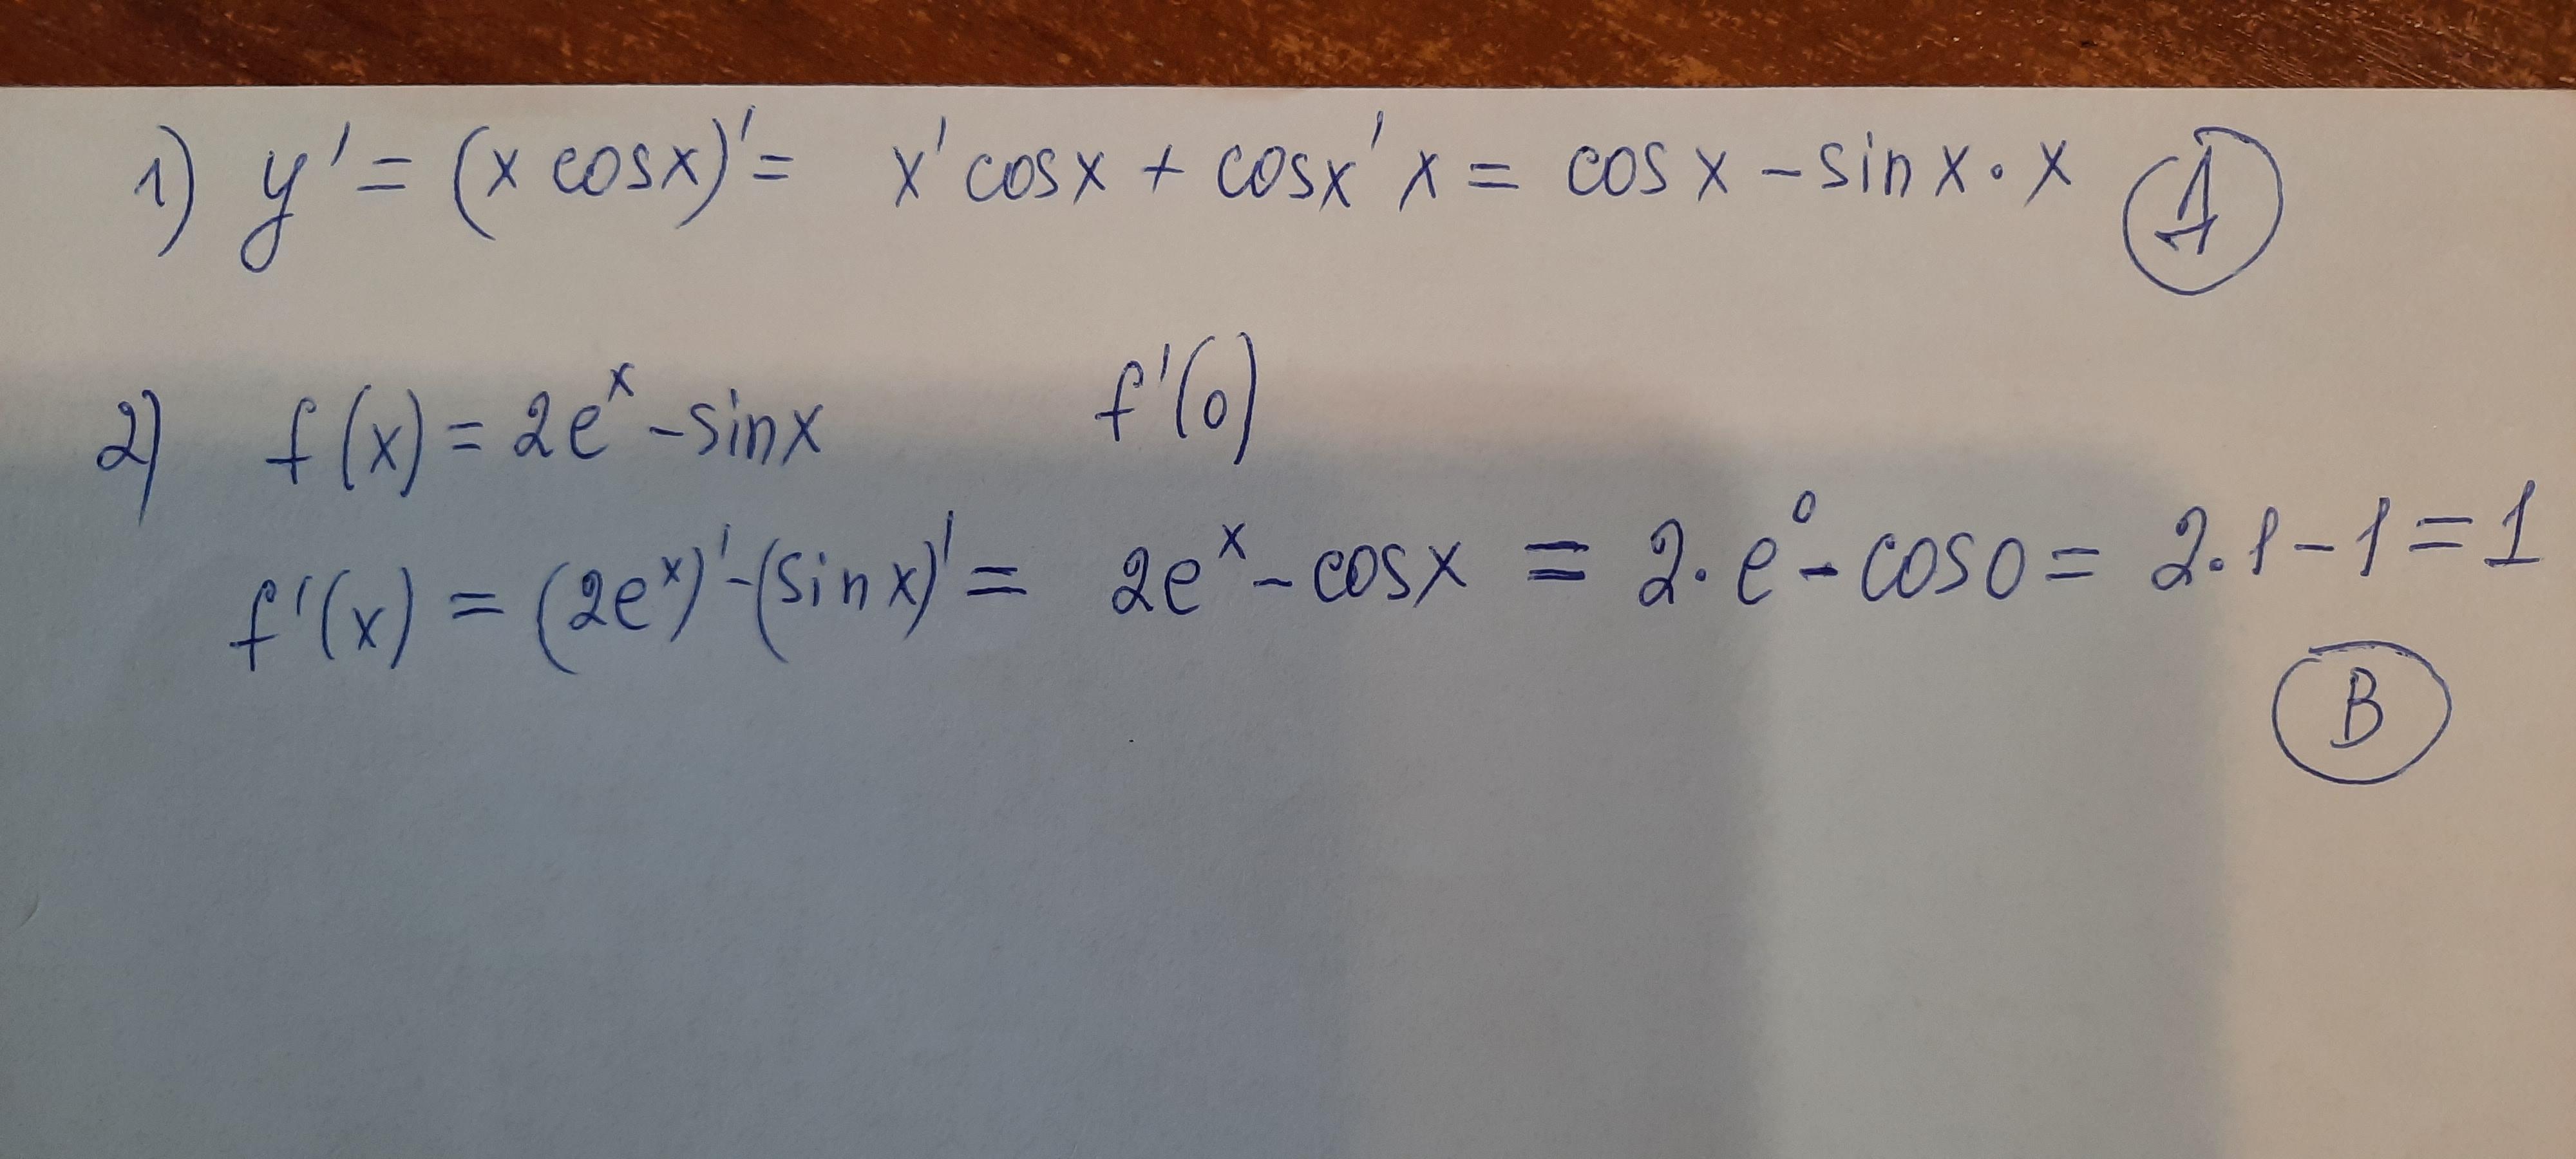 1) y' = (x cosx)' = x' cosx + cosx' x = cos x - sin x · x Д
2) f(x) = 2eˣ - sinx f'(0)
f'(x) = (2eˣ)' - (sin x)' = 2eˣ - cosx = 2 · e⁰ - cos0 = 2 · 1 - 1 = 1
В